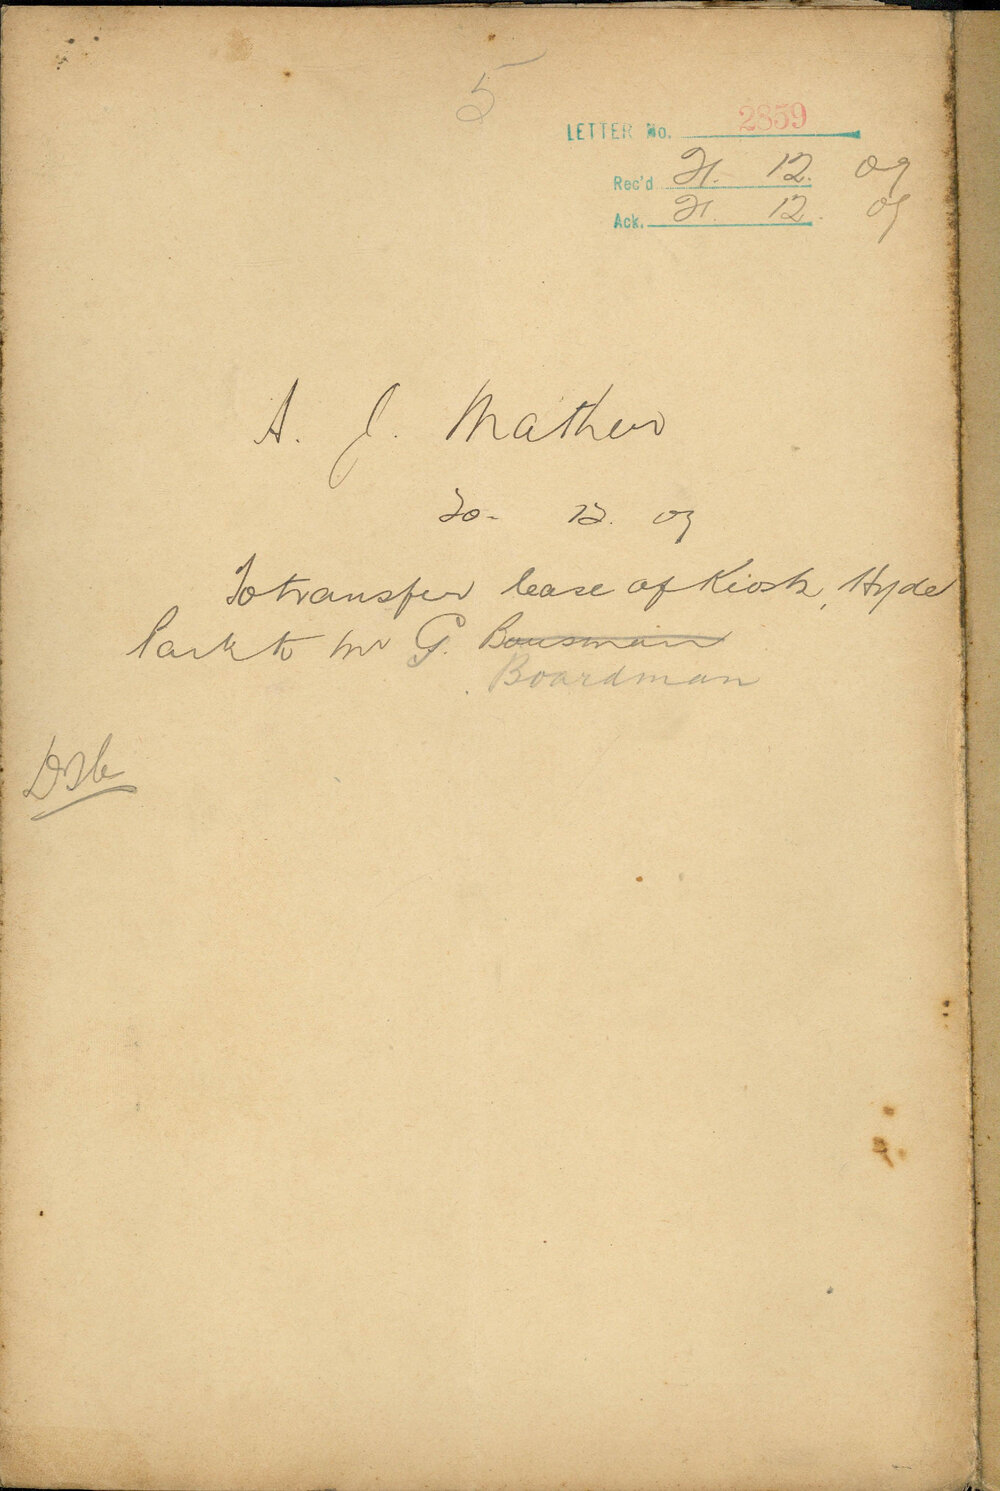 5
LETTER No. 2859
Rec'd 21. 12. 09
Ack. 21. 12. 09
A. J. Mather
20- 12. 09
To transfer lease of Kiosk, Hyde
Park to Mr G. Bousman
Boardman